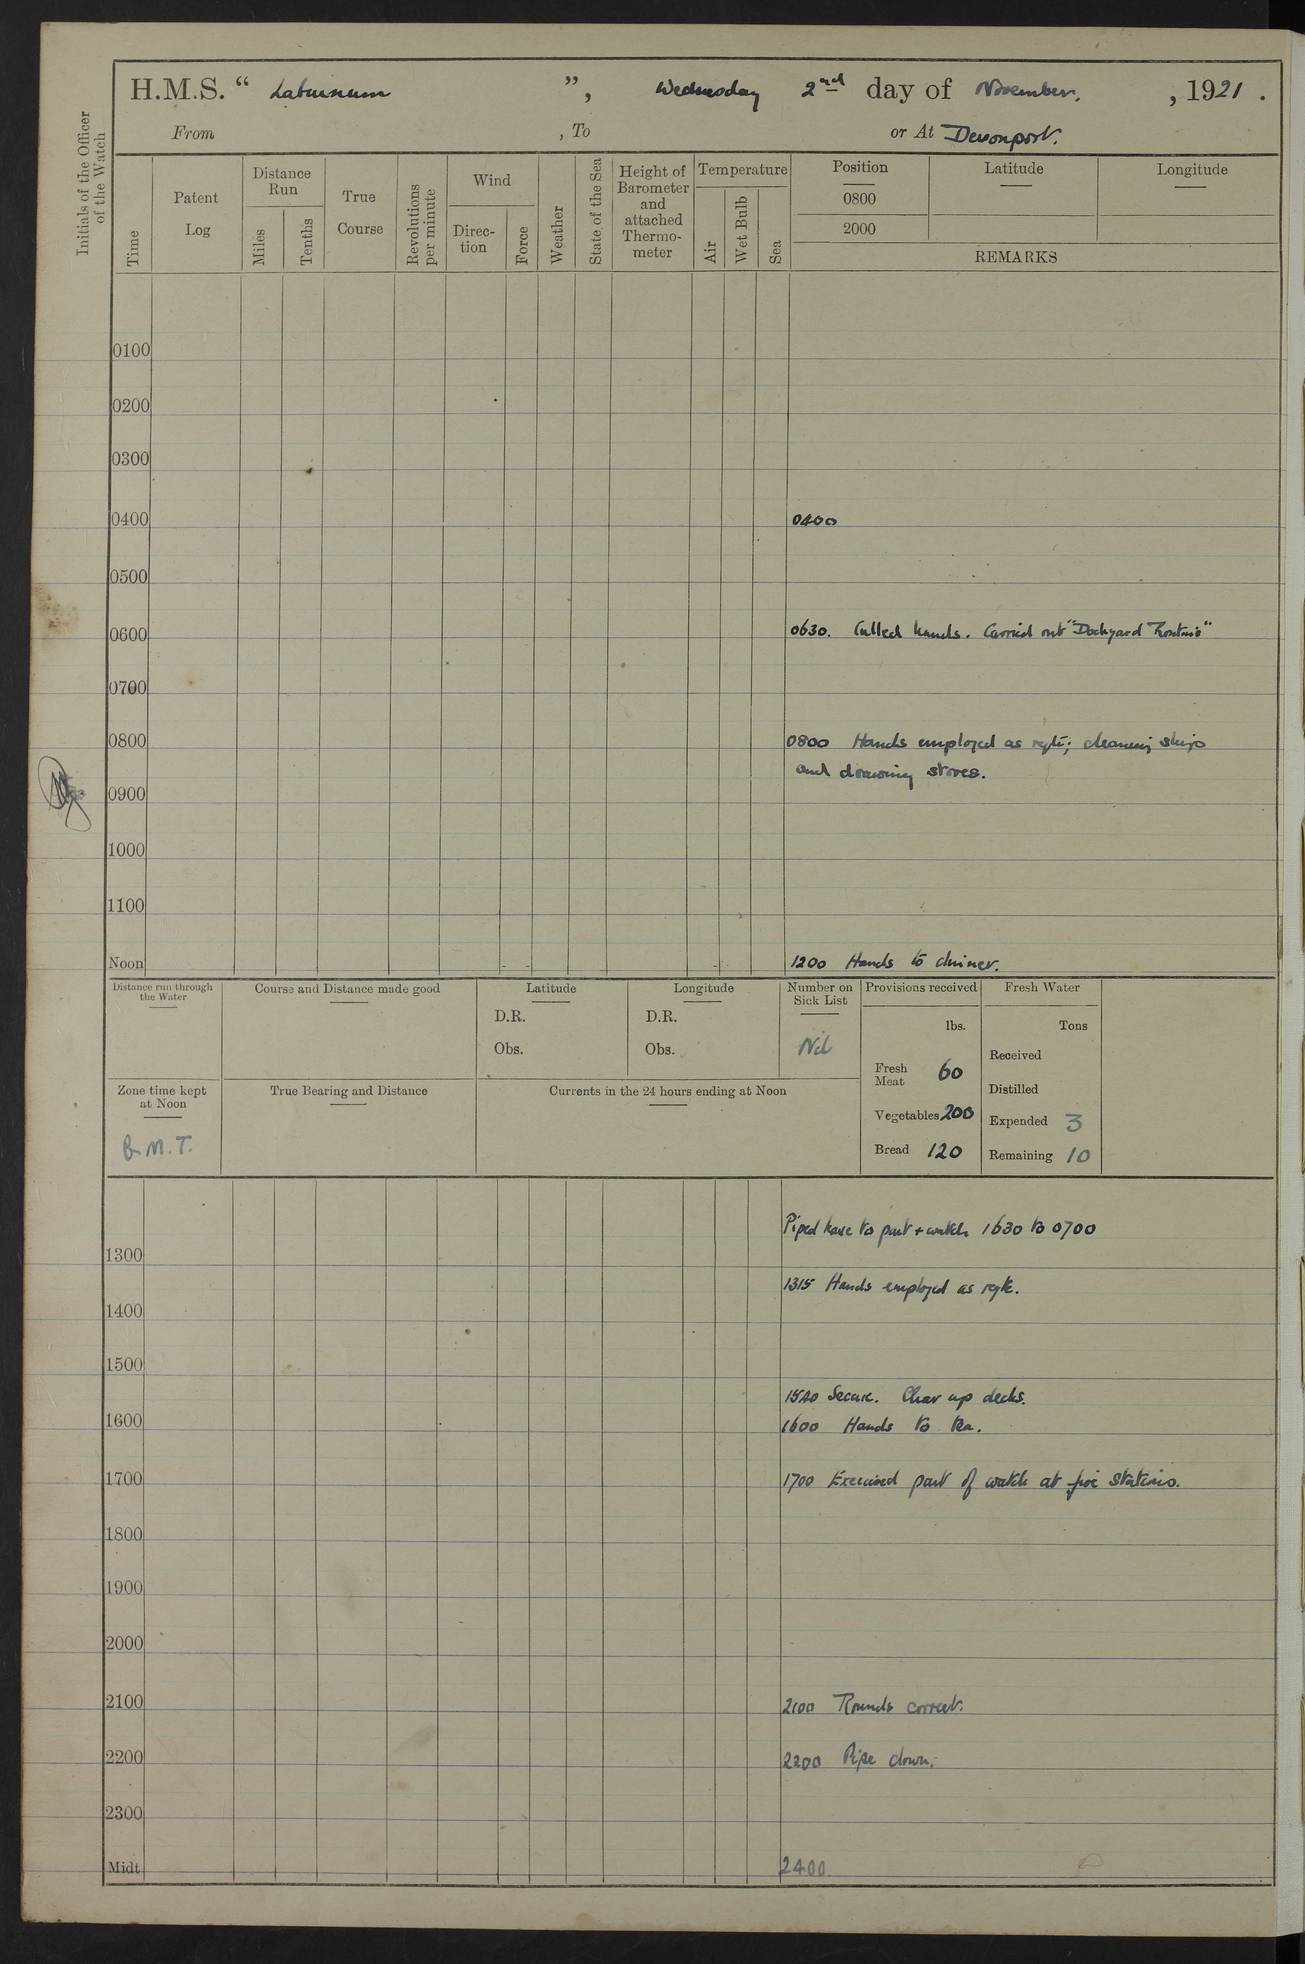 H.M.S. “ Laburnum ”, Wednesday 2nd day of November, , 1921 .
From , To or At Devonport.
Initials of the Officer of the Watch
Time
Patent Log
Distance Run
Miles
Tenths
True Course
Revolutions per minute
Wind
Direc-tion
Force
Weather
State of the Sea
Height of Barometer and attached Thermo-meter
Temperature
Air
Wet Bulb
Sea
Position
0800
2000
Latitude
Longitude
REMARKS
0100
0200
0300
0400 0400
0500
0600 0630. Called hands. Carried out "Dockyard Routine"
0700
0800 0800 Hands employed as reqte; cleaning ship
and drawing stores.
0900
1000
1100
Noon 1200 Hands to dinner.
Distance run through the Water
Course and Distance made good
Latitude
D.R.
Obs.
Longitude
D.R.
Obs.
Number on Sick List
Nil
Provisions received
lbs.
Fresh Meat 60
Vegetables 200
Bread 120
Fresh Water
Tons
Received
Distilled
Expended 3
Remaining 10
Zone time kept at Noon
G.M.T.
True Bearing and Distance
Currents in the 24 hours ending at Noon
Piped leave to part + watch 1630 to 0700
1300
1315 Hands employed as reqte.
1400
1500
1540 Secure. Clear up decks.
1600 1600 Hands to tea.
1700 1700 Exercised part of watch at fire stations.
1800
1900
2000
2100 2100 Rounds correct.
2200 2200 Pipe down.
2300
Midt 2400